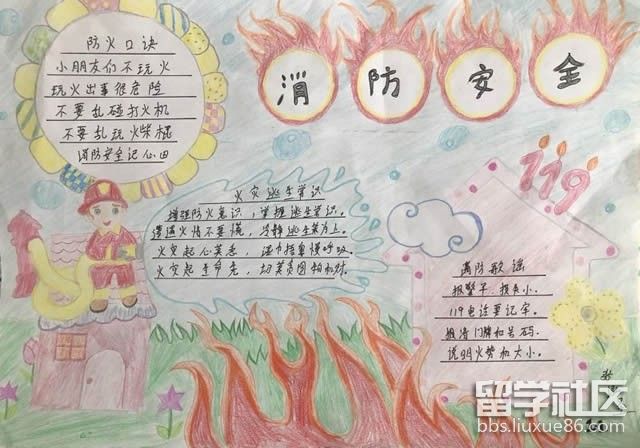 消防安全
防火口诀
小朋友们不玩火
玩火出事很危险
不要乱碰打火机
不要乱玩火柴棍
消防安全记心田
119
火灾逃生常识
增强防火意识,掌握逃生常识。
遭遇火情不要慌,冷静逃生为上。
火灾起心莫急,湿巾捂鼻慢呼吸。
火灾起 命 ,切莫贪图
消防歌谣
报警早、损失小。
119电话要记牢。
报清门牌和号码。
说明火势和大小。
留学社区
bbs.liuxue86.com